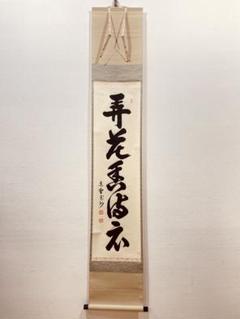 弄花香満衣